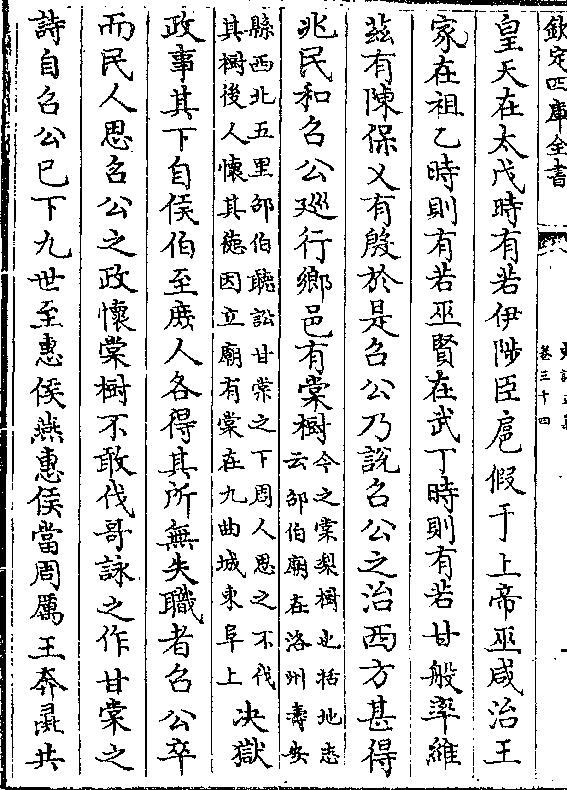 欽定四庫全書
卷三十四
皇天在太戊時有若伊陟臣扈假于上帝巫咸治王
家在祖乙時則有若巫賢在武丁時則有若甘般率維
茲有陳保乂有殷於是召公乃說召公之治西方甚得
兆民和召公廵行鄉邑有棠樹今之棠梨樹也括地志云邵伯廟在洛州壽安
縣西北五里邵伯聽訟甘棠之下周人思之不伐其樹後人懷其德因立廟有棠在九曲城東阜上決獄
政事其下自侯伯至庶人各得其所無失職者召公卒
而民人思召公之政懷棠樹不敢伐哥詠之作甘棠之
詩自召公已下九世至惠侯燕惠侯當周厲王奔彘共